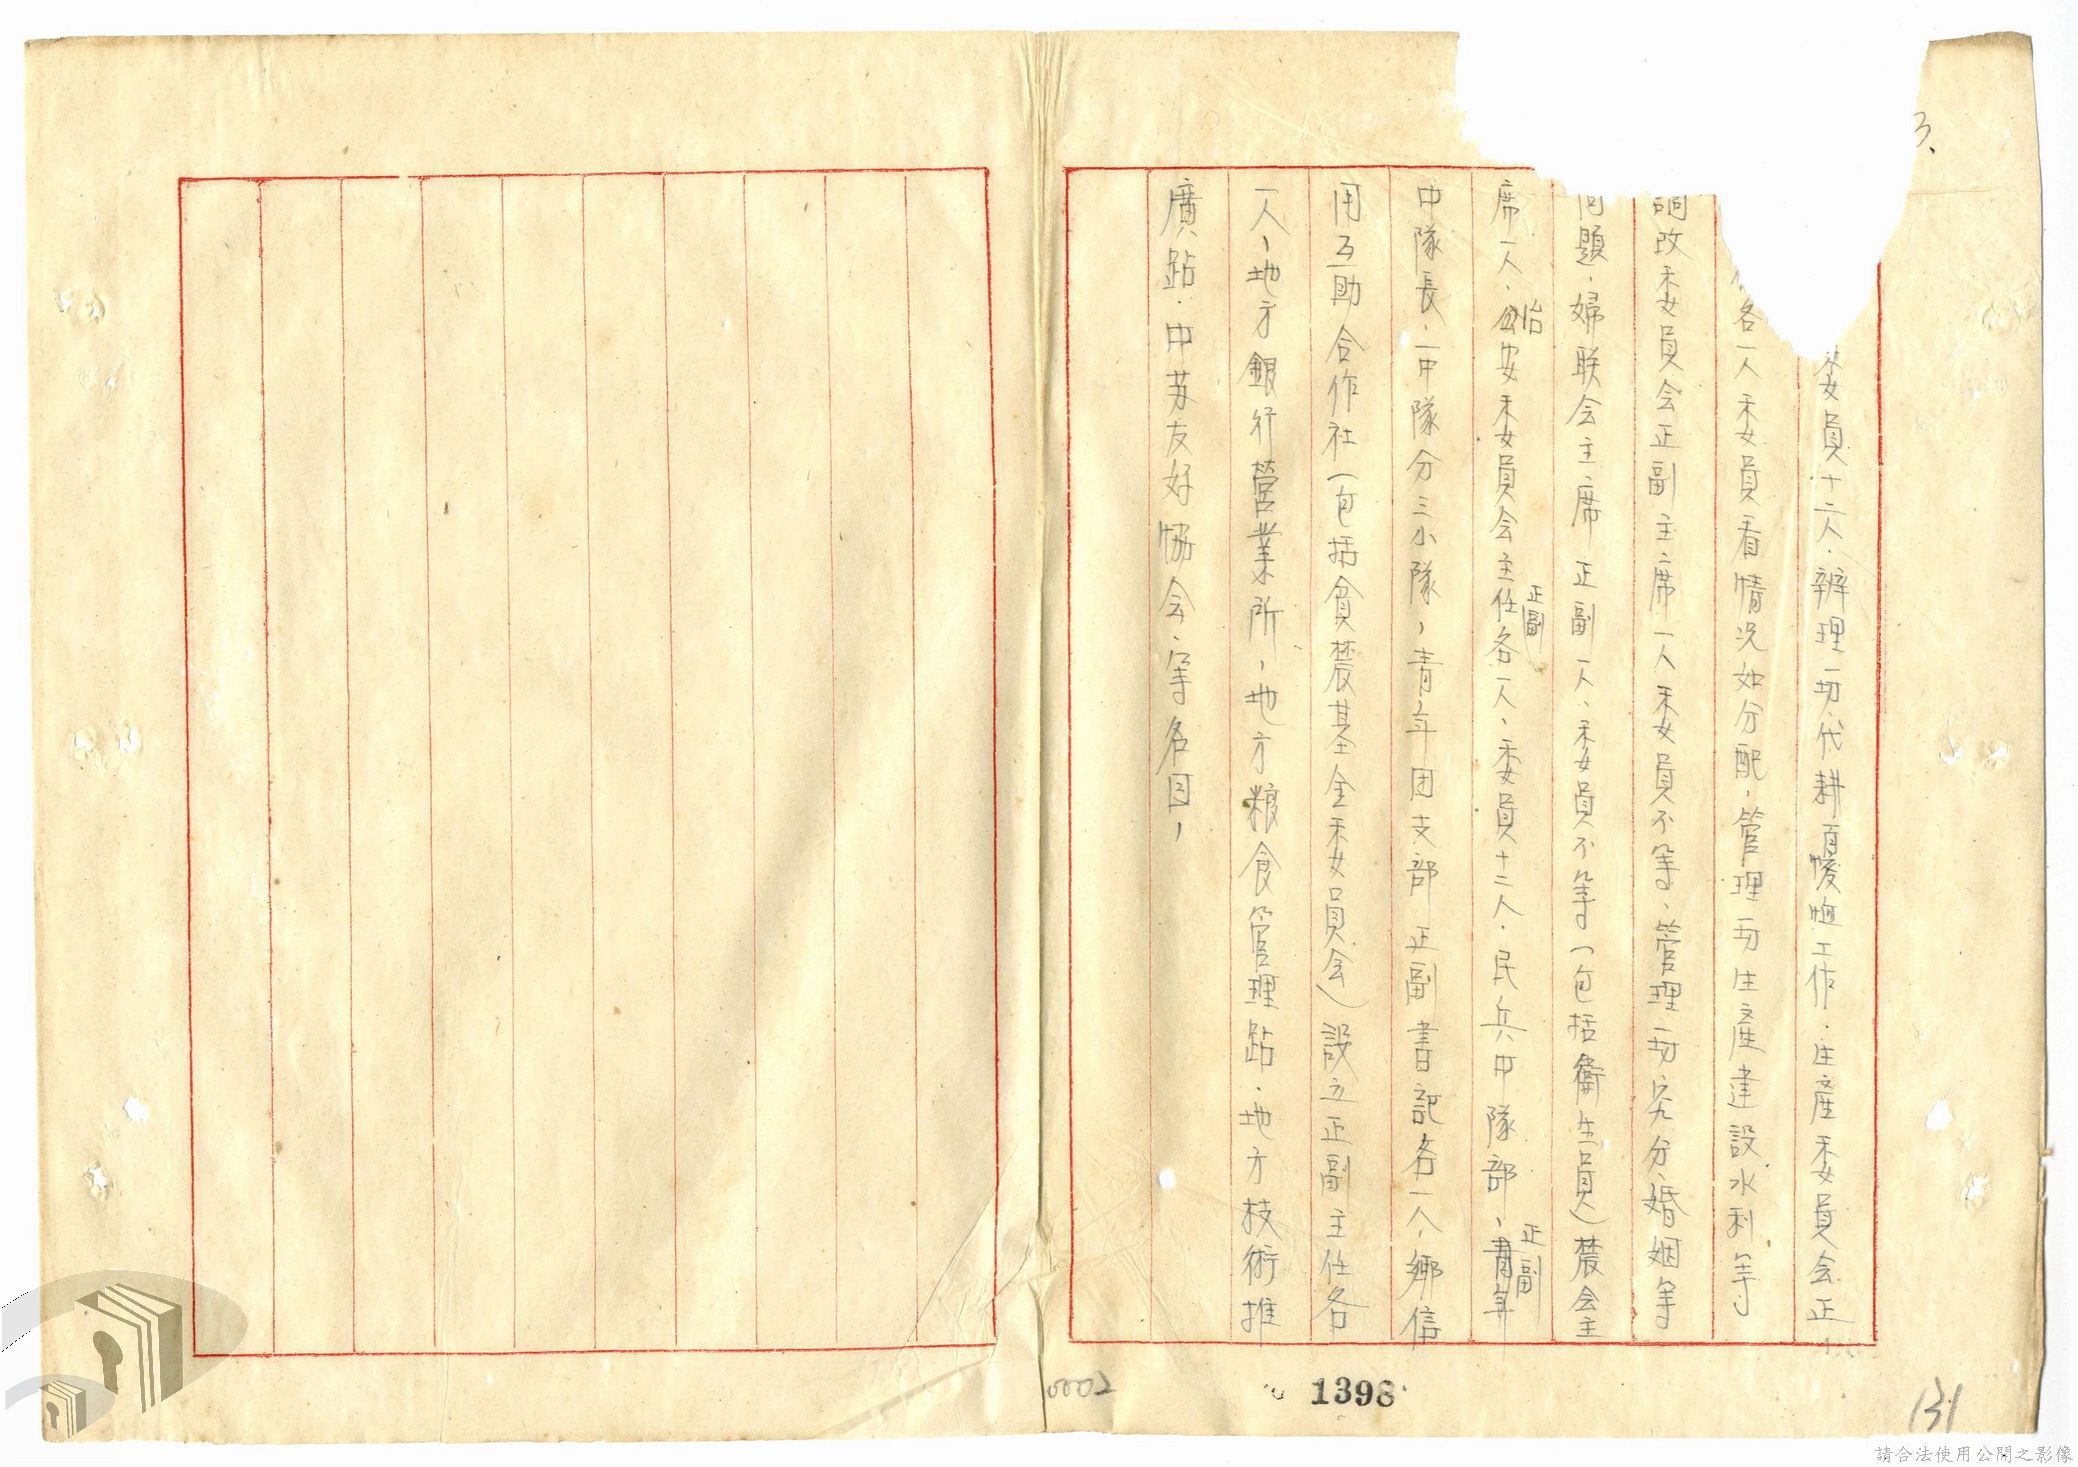 3.
委員十二人．辦理一切代耕優恤工作．生產委員会正
各一人委員看情況如分配，管理一切生產建設水利等
調改委員会正副主席一人委員不等、管理一切究分、婚姻等
问題．婦联会主席正副一人、委員不等（包括衛生員）農会主
席一人、治安委員会正副主任各一人、委員十二人．民兵中隊部、正副
中隊長．一中隊分三小隊，青年团支部正副書記各一人，鄉信
用互助合作社（包括貧農基金委員会）設立正副主任各
一人，地方銀行營業所，地方粮食管理跕．地方技術推
廣跕．中苏友好協会，等名目，
0002
1398
131
請合法使用公開之影像